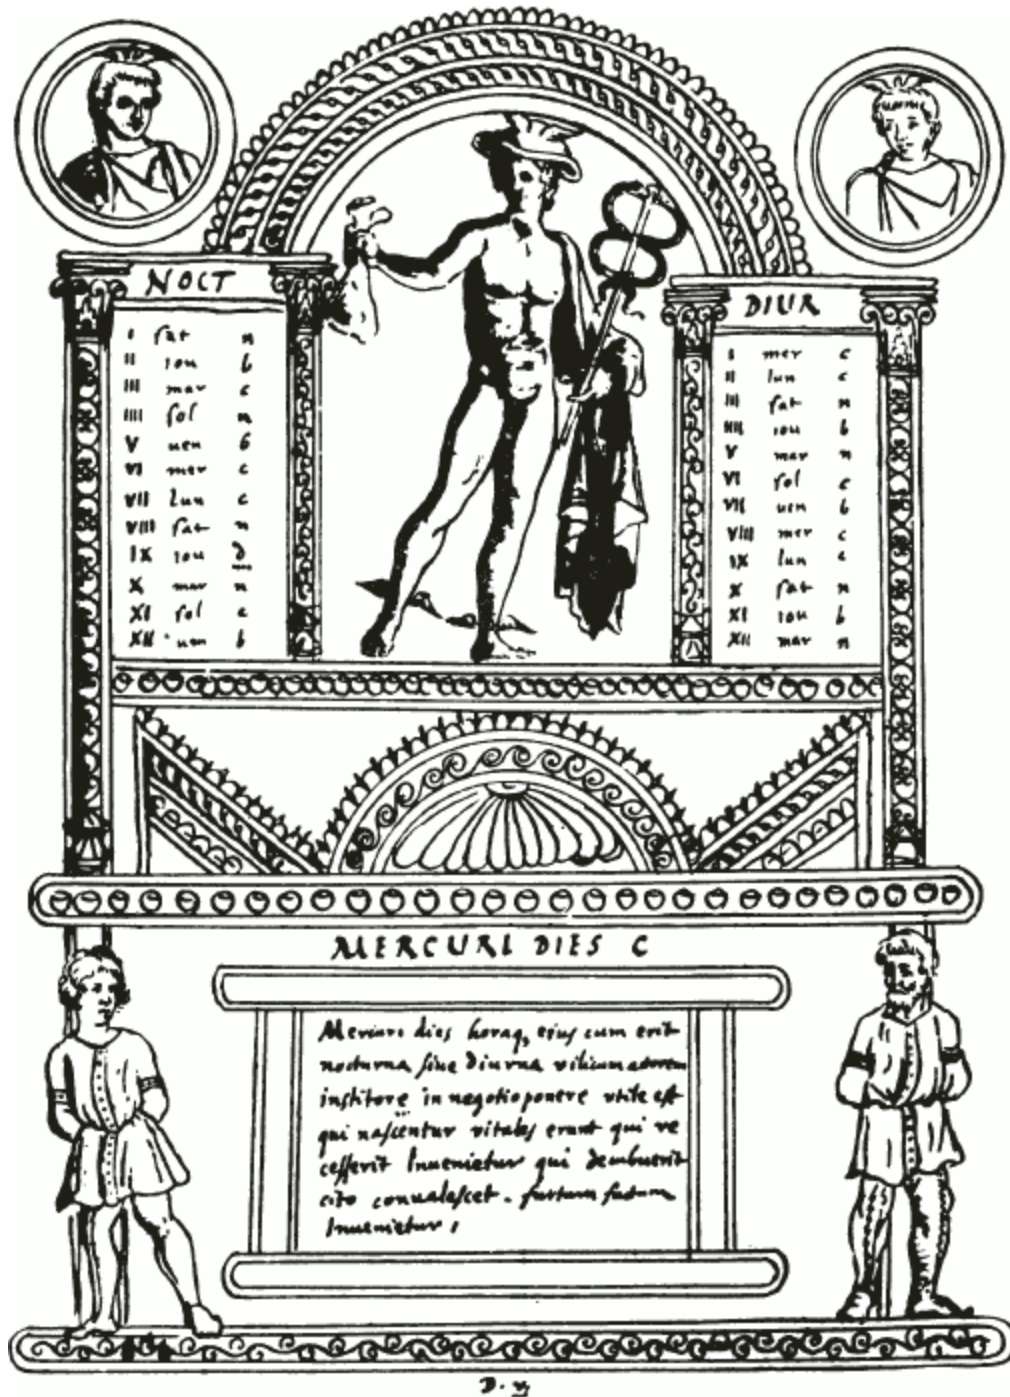 NOCT
I sat n
II iou b
III mar c
IIII sol n
V uen b
VI mer c
VII lun c
VIII sat n
IX iou d
X mar n
XI sol c
XII uen b
DIUR
I mer c
II lun c
III sat n
IIII iou b
V mar n
VI sol c
VII uen b
VIII mer c
IX lun c
X sat n
XI iou b
XII mar n
MERCURI DIES C
Mercuri dies horaq, eius cum erit
nocturna siue diurna vilicum
institore in negotio ponere vtile est
qui nascentur vitales erunt qui re
cesserit Inuenietur qui
cito conualescet . furtum factum
Inuenietur ,
D.